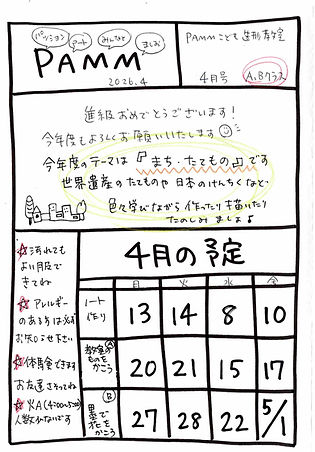 パッション
アート
みんなと
ましお
PAMM
2026.4
PAMMこども造形教室
4月号
A,Bクラス
進級おめでとうございます!
今年度もよろしくお願いいたします
今年度のテーマは『まち・たてもの』です
世界遺産のたてものや日本のけんちくなど、
色々学びながら作ったり描いたり
たのしみましょ♪
☆汚れても
よい服で
きてね
☆アレルギー
のある方は必ず
お知らせ下さい
☆体験できます
お友達さそってね
☆火A(4:00〜5:00)
人数少ないです
4月の予定
月 火 水 金
ノート作り 13 14 8 10
Ⓐ教室のものをかこう 20 21 15 17
Ⓑ墨で花をかこう 27 28 22 5/1